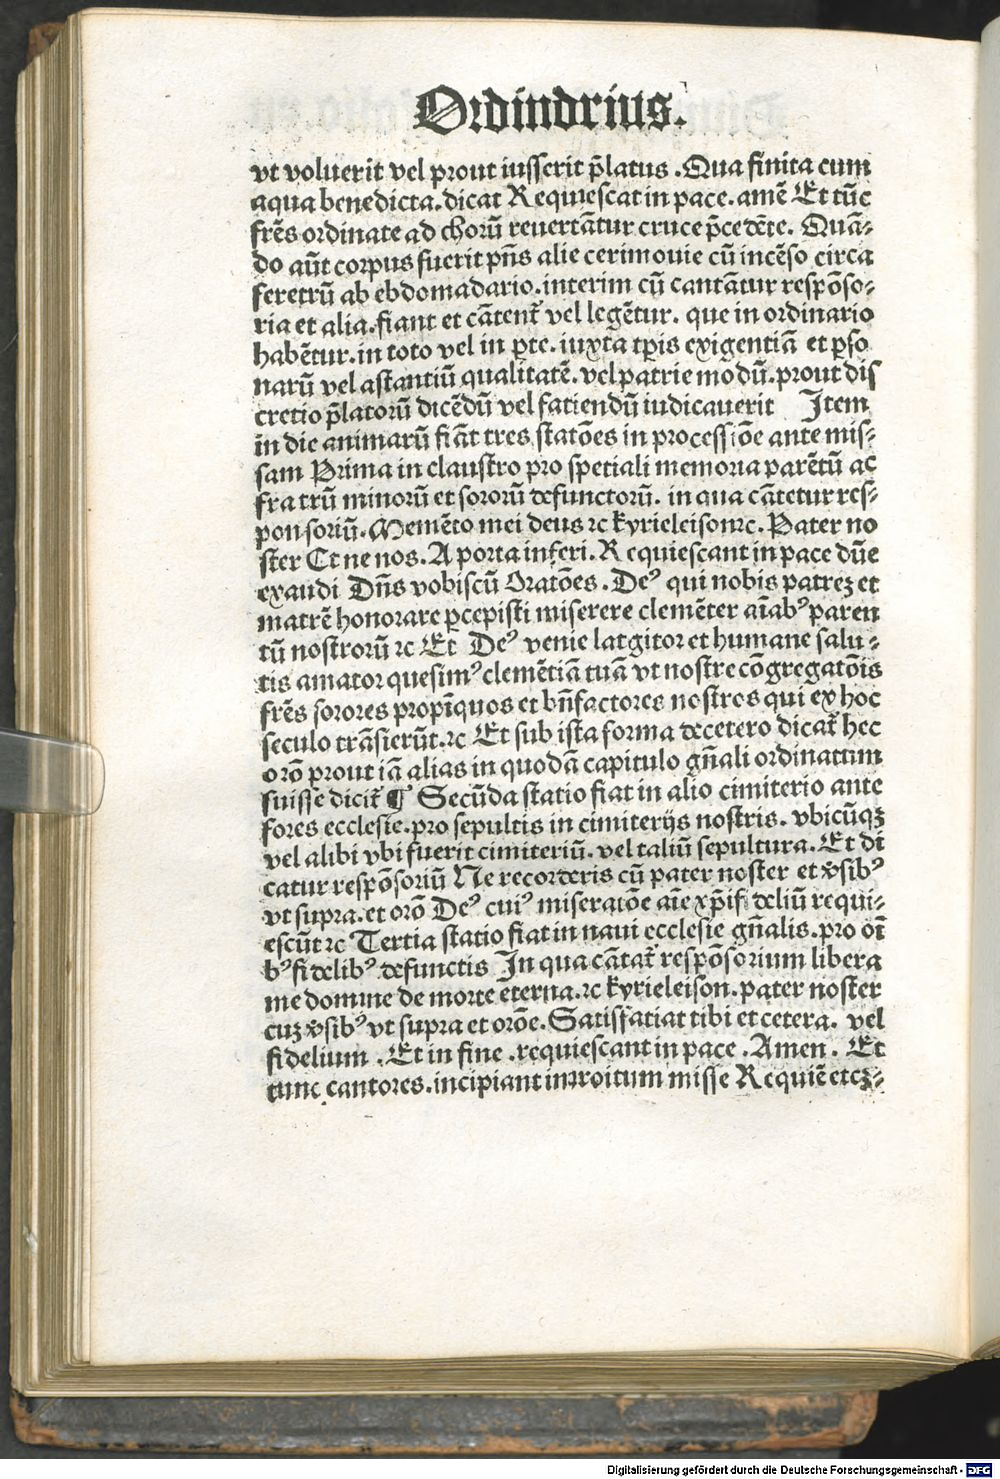 Ordindrius.
vt voluerit vel prout iusserit p̃latus .Qua finita cum
aqua benedicta.dicat Requiescat in pace.amẽ Et tũc
frẽs ordinate ad chorũ reuertãtur cruce p̃cedẽte. Quã⸗
do aũt corpus fuerit pñs alie cerimouie cũ incẽso circa
feretrũ ab ebdomadario.interim cũ cantãtur respõso⸗
ria et alia.fiant et cãtent᷑ vel legẽtur. que in ordinario
habẽtur.in toto vel in ꝑte.iuxta tꝑis exigentiã et ꝑso
narũ vel astantiũ qualitatẽ.vel patrie modũ.prout dis
cretio p̃latorũ dicẽdũ vel fatiendũ iudicauerit Item
in die animarũ fiãt tres statões in processiõe ante mis⸗
sam Prima in claustro pro spetiali memoria parẽtũ ac
fratrũ minorũ et sororũ defunctorũ. in qua cãtetur res⸗
ponsoriũ.Memẽto mei deus ⁊c kyrieleison⁊c.Pater no
ster Et ne nos.A porta inferi.Requiescant in pace dũe
exaudi Dñs vobiscũ Oratões.Deꝰ qui nobis patreꝫ et
matrẽ honorare ꝑcepisti miserere clemẽter aĩabꝰ paren
tũ nostrorũ ⁊c Et Deꝰ venie latgitor et humane salu⸗
tis amator quesimꝰ clemẽtiã tuã vt nostre cõgregatõis
frẽs sorores propĩquos et bñfactores nostros qui ex hoc
seculo trãsierũt.⁊c Et sub ista forma decetero dicat᷑ hec
orõ prout iã alias in quodã capitulo gñali ordinatum
fuisse dicit᷑ ¶ Secũda statio fiat in alio cimiterio ante
fores ecclesie.pro sepultis in cimiterijs nostris. vbicũqꝫ
vel alibi vbi fuerit cimiteriũ.vel taliũ sepultura.Et di
catur respõsoriũ Ne recorderis cũ pater noster et v̾sibꝰ
vt supra.et orõ Deꝰ cuiꝰ miseratõe aĩe xp̃i fideliũ requi⸗
escũt ⁊c Tertia statio fiat in naui ecclesie gñalis.pro oĩ
bꝰ fidelibꝰ defunctis In qua cãtat᷑ respõsorium libera
me domine de morte eterna.⁊c kyrieleison.pater noster
cuꝫ v̾sibꝰ vt supra et orõe.Satisfatiat tibi et cetera. vel
fidelium .Et in fine .requiescant in pace .Amen. Et
tunc cantores.incipiant introitum misse Requiẽ etcꝫ⸗
Digitalisierung gefördert durch die Deutsche Forschungsgemeinschaft - DFG